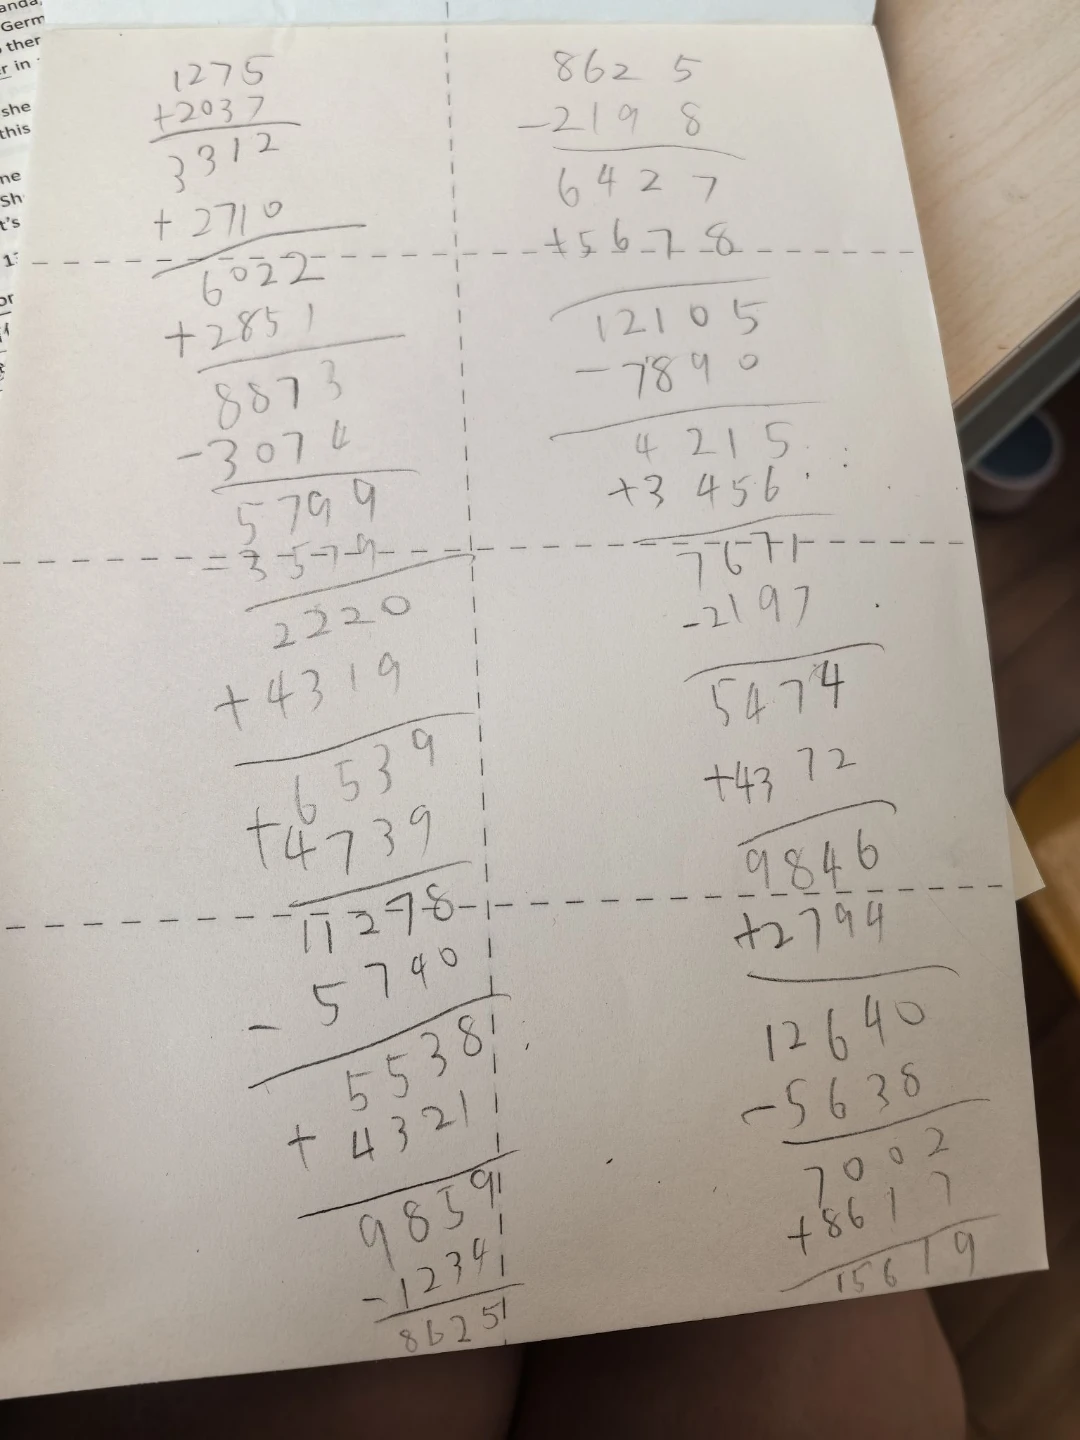 1275
+2037
3312
+2710
6022
+2851
8873
-3074
5799
-3579
2220
+4319
6539
+4739
11278
-5740
5538
+4321
9859
-1234
8625
8625
-2198
6427
+5678
12105
-7890
4215
+3456
7671
-2197
5474
+4372
9846
+2794
12640
-5638
7002
+8617
15619